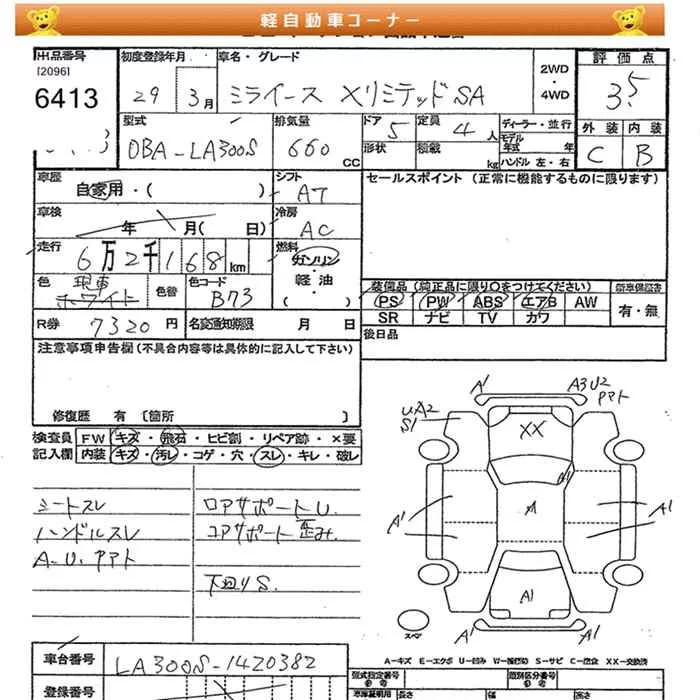 軽自動車コーナー
出品番号
[2096]
6413
初度登録年月
29 3月
車名・グレード
ミライース Xリミテッド SA
2WD
・
4WD
評価点
3.5
外装 内装
C B
型式
DBA-LA300S
排気量
660 CC
ドア 5
定員 4人
形状
積載 kg
ディーラー・並行
モデル年式 年
ハンドル 左・右
車歴
自家用・( )
シフト
AT
車検
年 月( 日)
冷房
AC
走行
6万2千168km
燃料
ガソリン
・
軽油
・
( )
色
現車
ホワイト
色替
色コード
B73
R券 7320円
名変通知期限 月 日
セールスポイント (正常に機能するものに限ります)
装備品(純正品に限り○をつけてください)
PS PW ABS エアB AW
SR ナビ TV カワ
新車保証書
有・無
後日品
注意事項申告欄(不具合内容等は具体的に記入して下さい)
修復歴 有 [箇所 ]
検査員
記入欄
FW キズ・飛石・ヒビ割・リペア跡・×要
内装 キズ・汚レ・コゲ・穴・スレ・キレ・破レ
シートスレ
ハンドルスレ
A.U.PPト
ロアサポートU.
コアサポート歪み.
下廻りS.
A1
A3U2
PPト
UA2
S1
XX
A
A1
A1
A1
A1
A1
スペア
A-キズ E-エクボ U-凹み W-補修跡 S-サビ C-腐食 XX-交換済
車台番号
LA300S-1420382
登録番号
型式指定番号
類別区分番号
長さ
幅
高さ